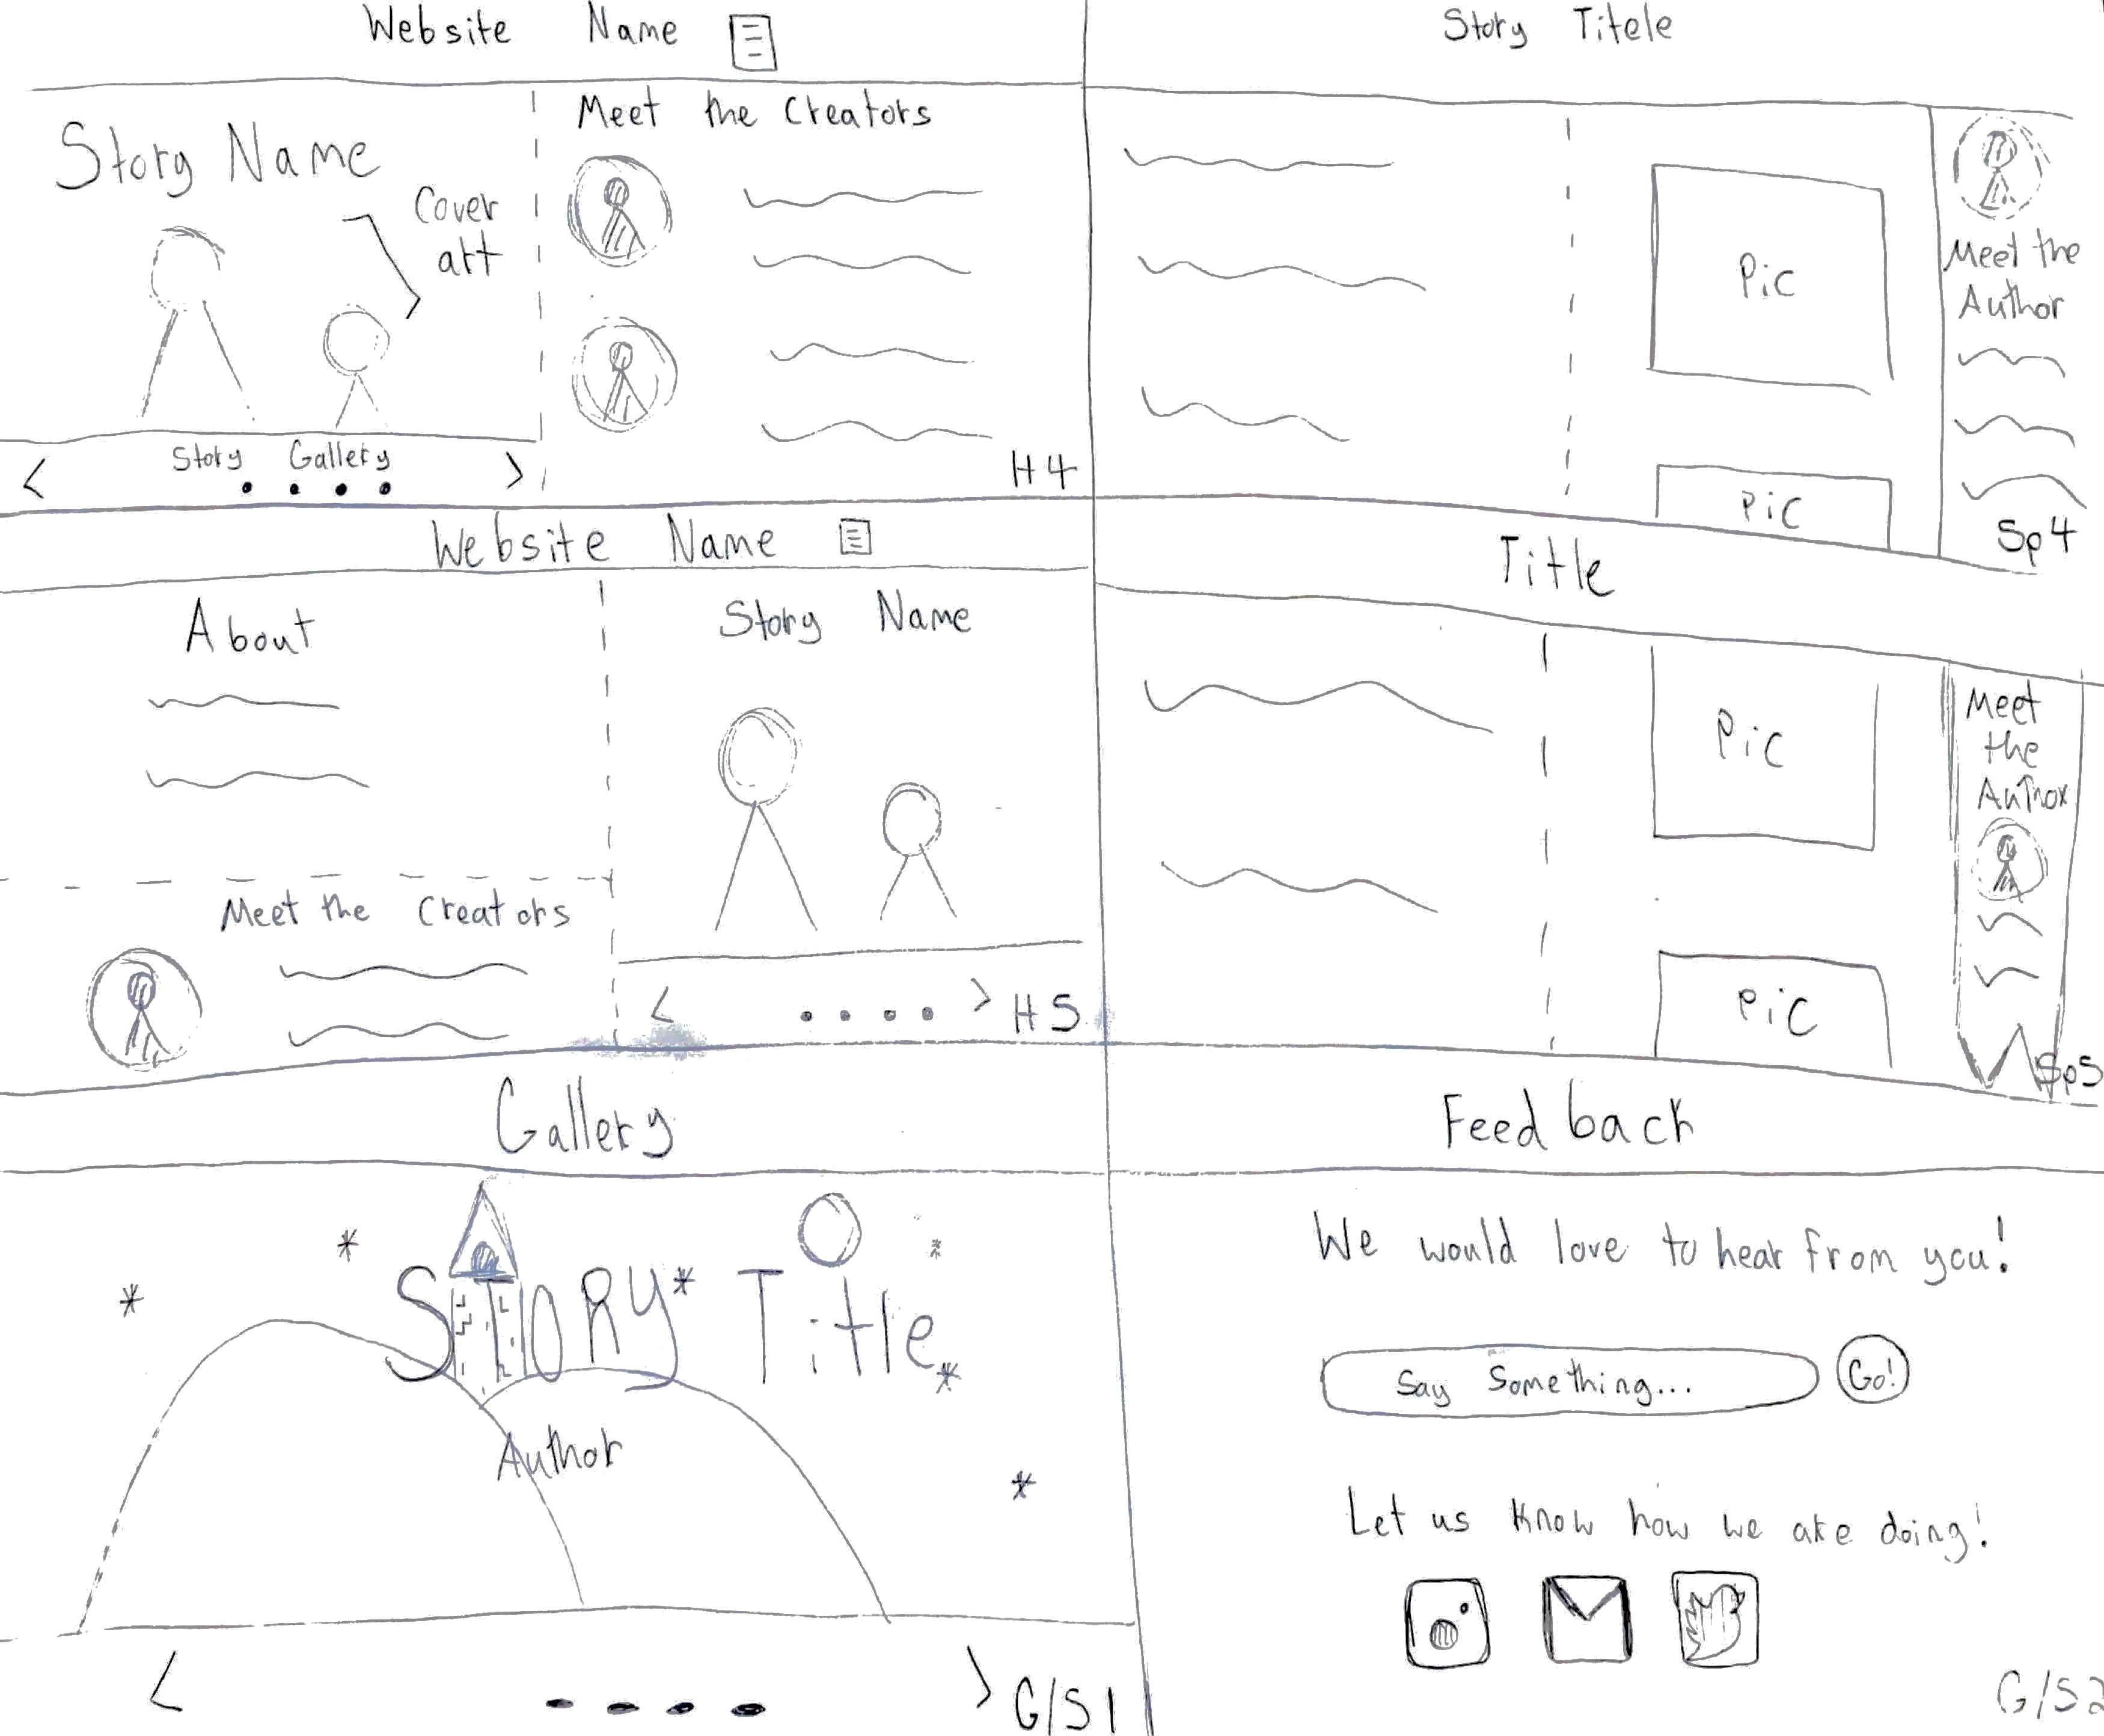 Website Name
Story Name
Cover
art
Story Gallery
Meet the Creators
H4
Story Titele
Pic
Pic
Meet the
Author
Sp4
Website Name
About
Meet the Creators
Story Name
H5
Title
Pic
Pic
Meet
the
Author
Sp5
Gallery
STORY Title
Author
G/S1
Feedback
We would love to hear from you!
Say Something...
Go!
Let us know how we are doing!
G/S2